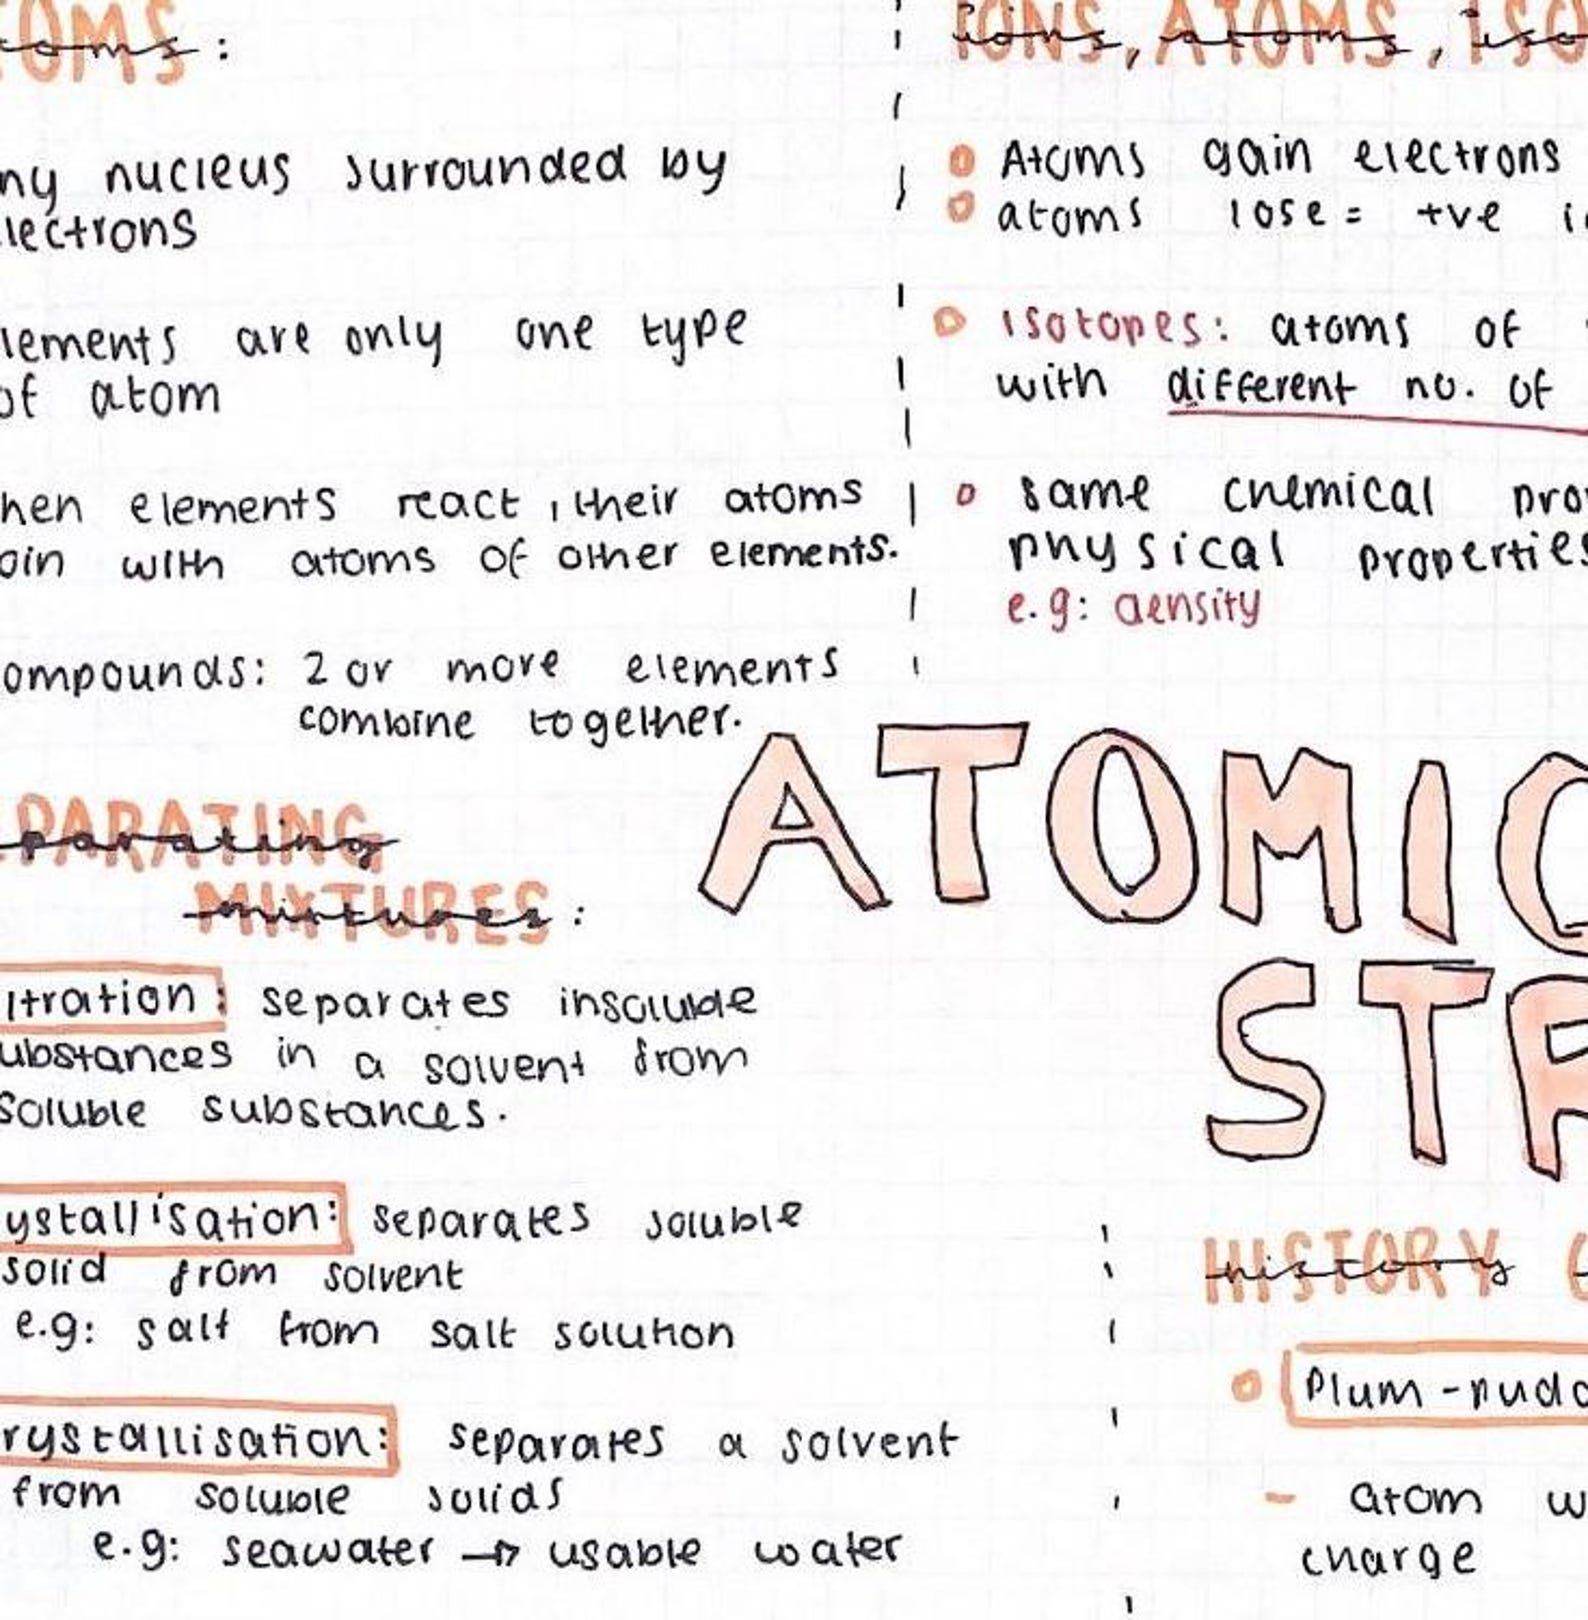 OMS
oms:
ny nucleus surrounded by
lectrons
lements are only one type
of atom
hen elements react, their atoms
oin with atoms of other elements.
ompounds: 2 or more elements
combine together.
PARATING
parating
MIXTURES
mixtures:
ltration: separates insoluble
ubstances in a solvent from
soluble substances.
ystallisation: separates soluble
solid from solvent
e.g: salt from salt solution
rystallisation: separates a solvent
from soluble solids
e.g: seawater → usable water
IONS, ATOMS, ISO
ions, atoms, iso
Atoms gain electrons
atoms lose = +ve i
isotopes: atoms of
with different no. of
same chemical pro
physical properties
e.g: density
ATOMIC
STR
HISTORY
history
Plum-pudd
- atom w
charge